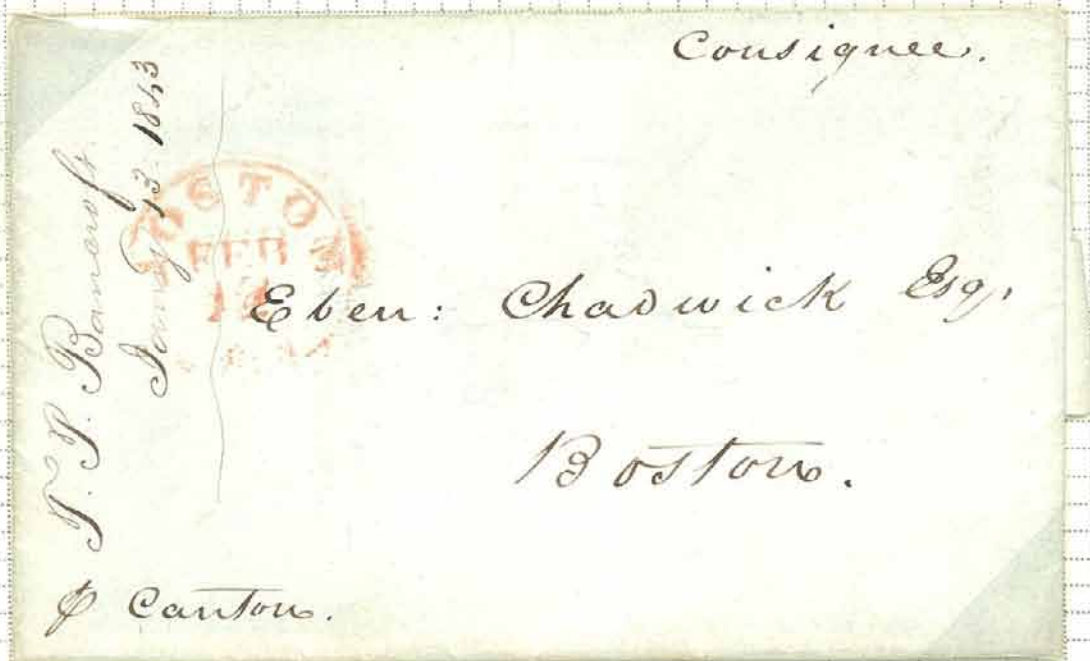 Consignee.
T. P. Bancroft.
Jany 13 1843
FEB
Eben: Chadwick Esq.
Boston.
⅌ Canton.